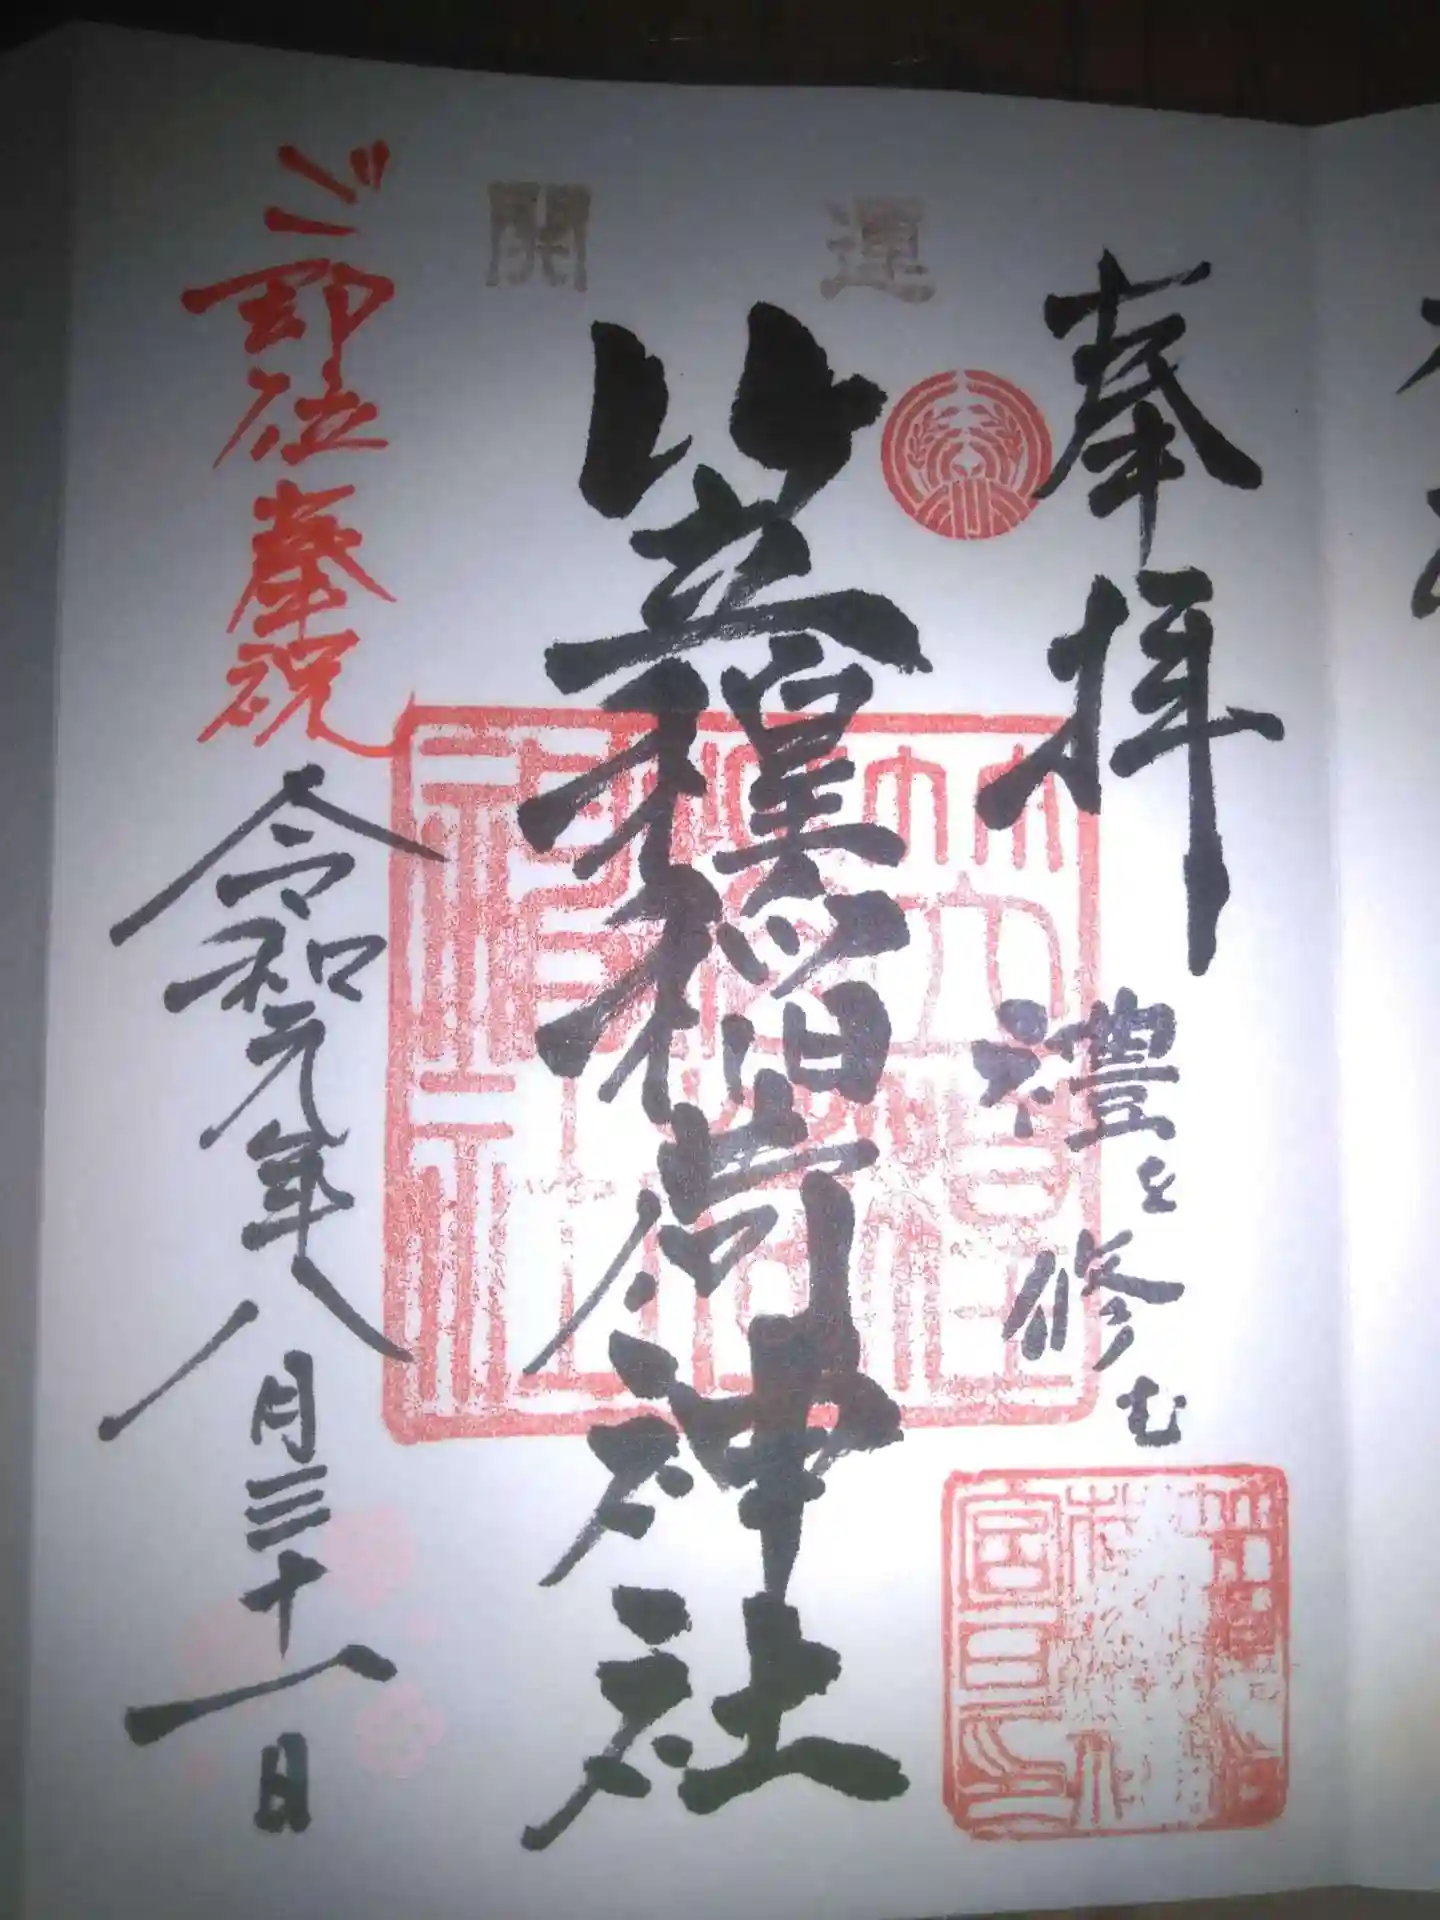 開 運
奉拝 禮を修む
笠䅣稲荷神社
ご即位奉祝 令和元年八月三十一日